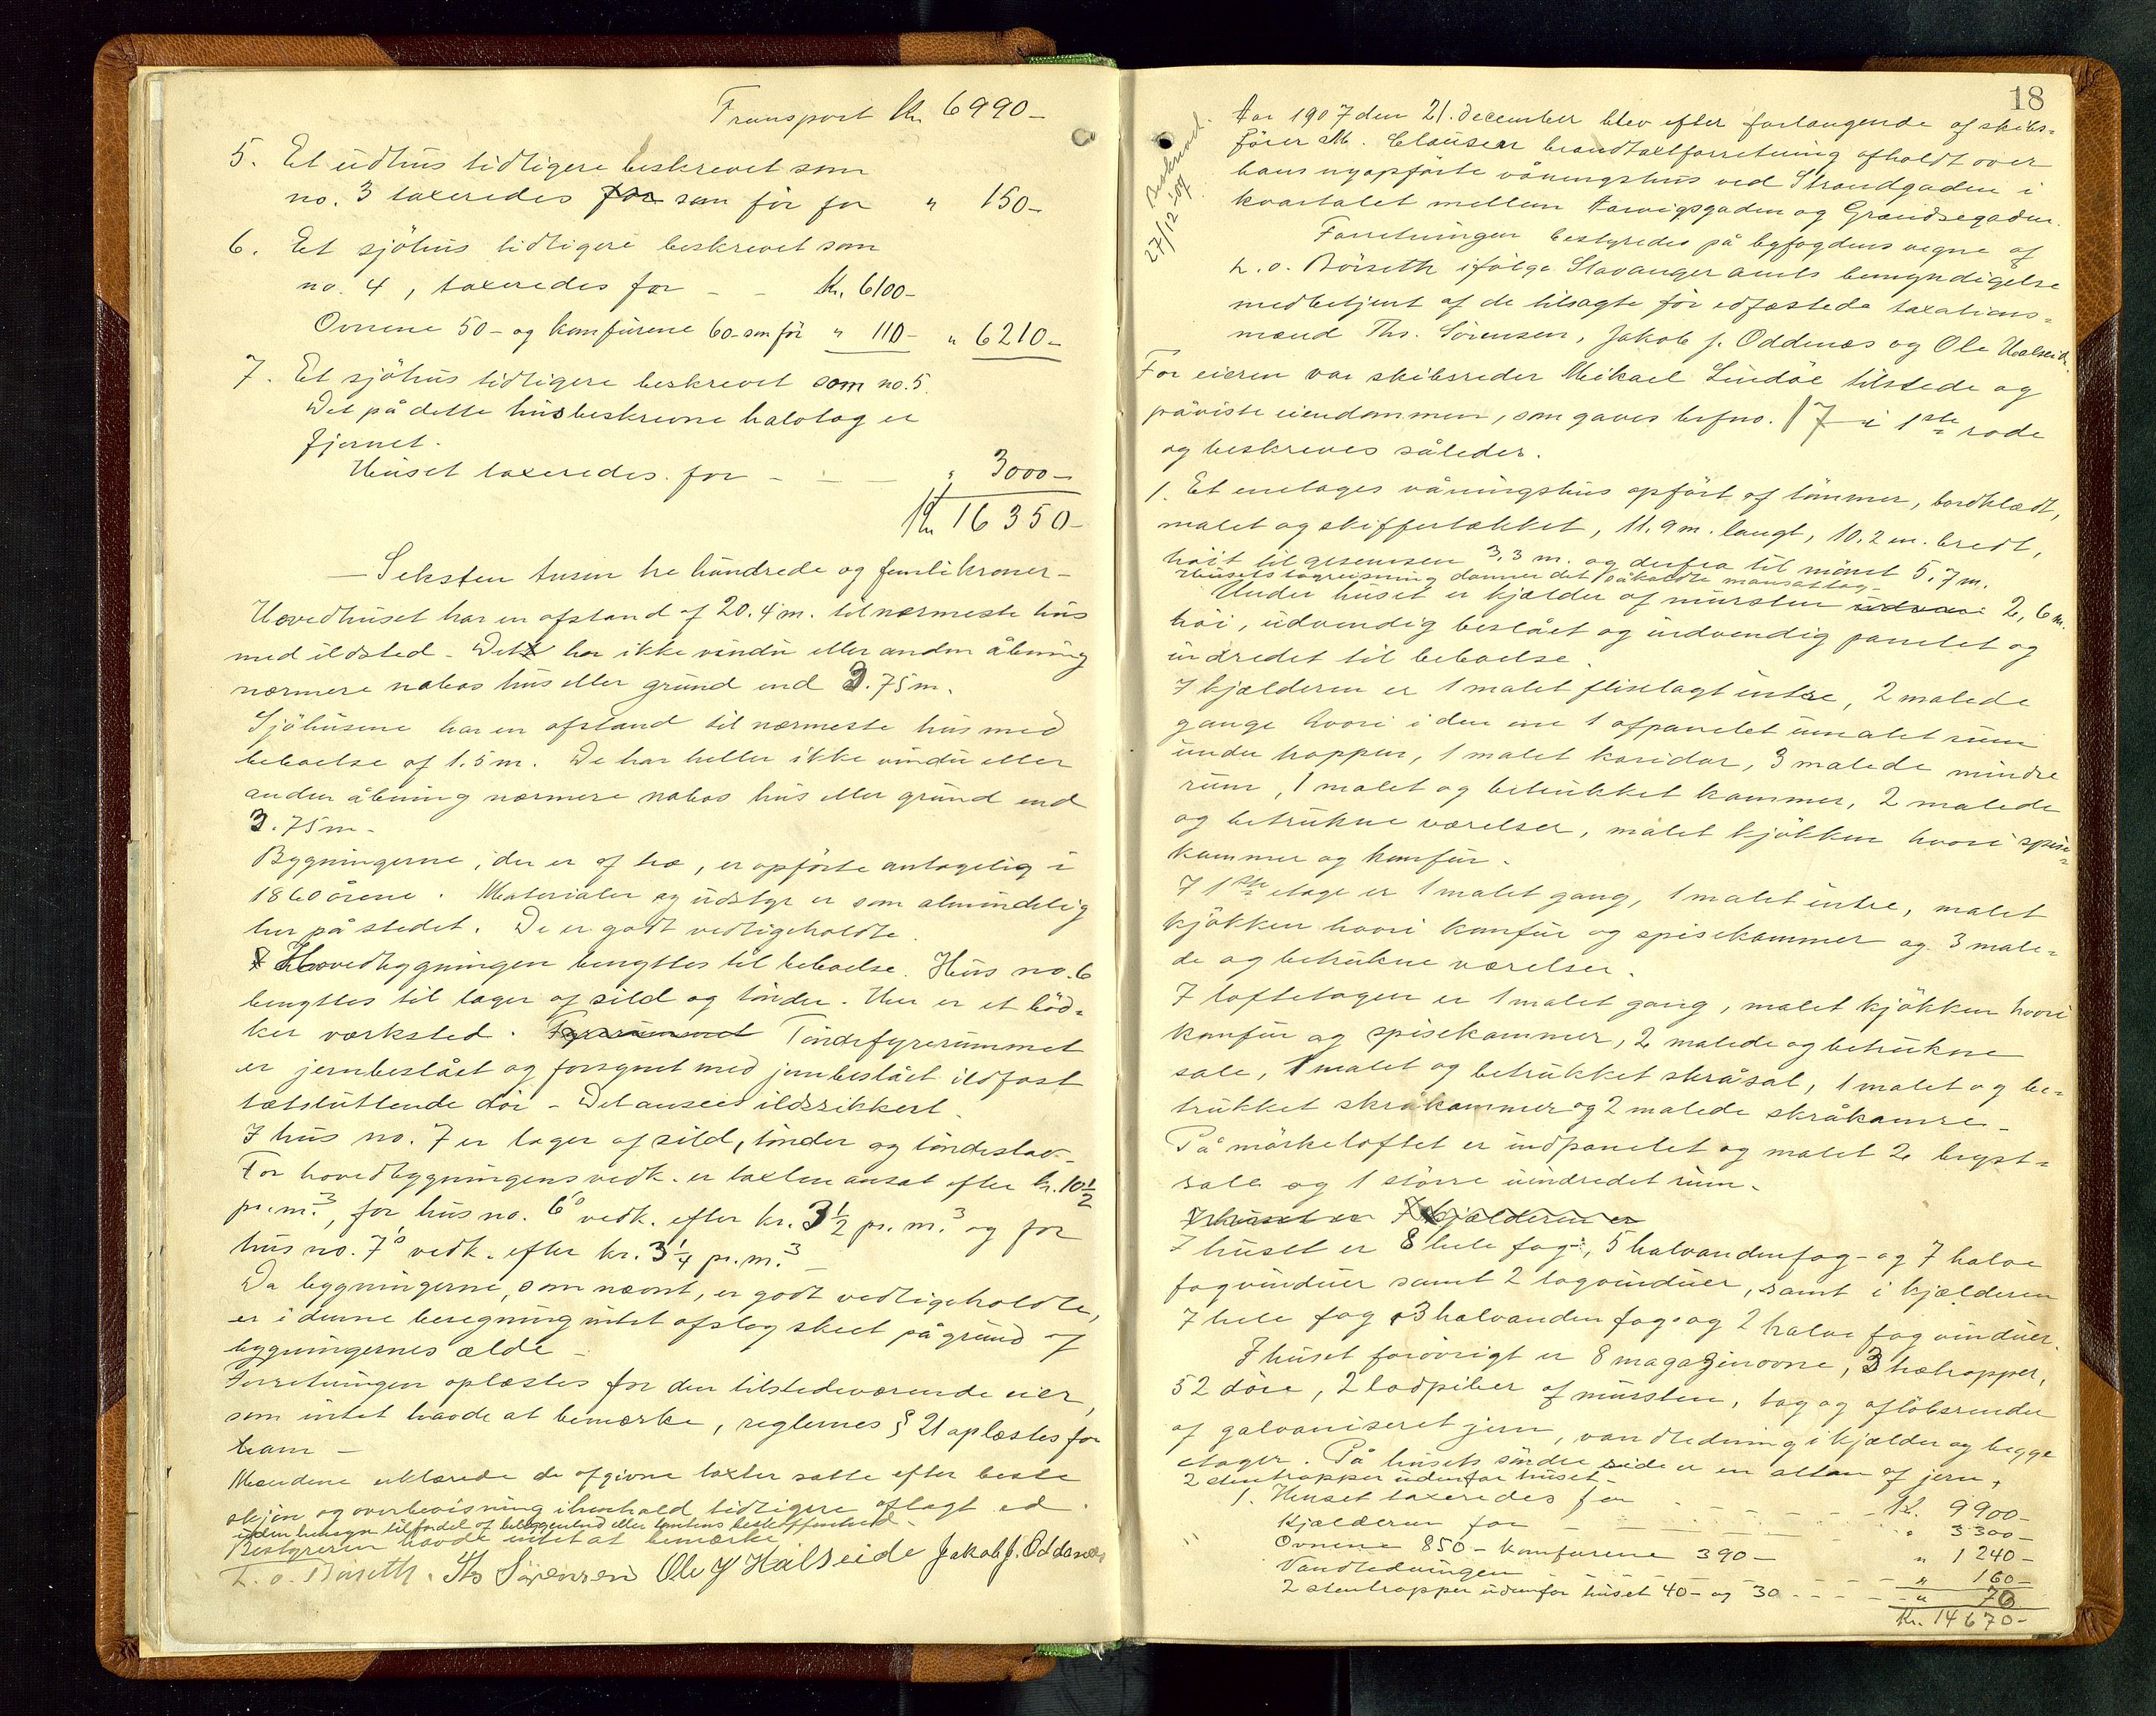 Transport Kr. 6990-
5. Et udhus tidligere beskrevet som
no. 3 taxeredes for som för for " 150-
6. Et sjöhus tidligere beskrevet som
no. 4, taxeredes for - - Kr. 6100-
Ovnene 50- og komfurene 60- som för " 110- " 6210-
7. Et sjöhus tidligere beskrevet som no. 5.
Det på dette hus beskrevne halvtag er
fjernet.
Huset taxeredes for - - - " 3000-
Kr. 16350-
- Seksten tusen tre hundrede og femti kroner -
Hovedhuset har en afstand af 20.4 m. til nærmeste hus
med ildsted - Det har ikke vindu eller anden åbning
nærmere nabos hus eller grund end 3.75 m.
Sjöhusene har en afstand til nærmeste hus med
beboelse af 1.5 m. De har heller ikke vindu eller
anden åbning nærmere nabos hus eller grund end
3.75 m -
Bygningerne, der er af træ, er opförte antagelig i
1860 årene. Materialer og udstyr er som almindelig
her på stedet. De er godt vedligeholdte.
Hovedbygningen benyttes til beboelse. Hus no. 6
benyttes til lager af sild og tönder. Her er etböd=
ker værksted. Fyrrummet Töndefyrerummet
er jernbeslået og forsynet med jernbeslået ildfast
tætsluttende dör - Det ansees ildsikkert.
I hus no. 7 er lager af sild, tönder og töndestav -
For hovedbygningens vedk. er taxten ansat efter kr. 10½
pr. m.³, for hus no. 6's vedk. efter kr. 3½ pr. m.³ og for
hus no. 7's vedk. efter kr. 3¼ pr. m.³ -
Da bygningerne, som nævnt, er godt vedligeholdte,
er i denne beregning intet afslag skeet på grund af
bygningernes ælde -
Forretningen oplæstes for den tilstedeværende eier,
som intet havde at bemærke, reglernes § 21 oplæstes for
ham -
Mændene erklærede de afgivne taxter satte efter beste
skjön og overbevisning i henhold tidligere aflagt ed.
uden hensyn til fordel af beliggenhed eller tomtens beskaffenhed -
Bestyreren havde intet at bemærke
L. o. Börseth. Ths Sørensen Ole J Halseide Jakob J. Oddenæs
18
Beskreved.
27/12 07
Aar 1907 den 21. december blev efter forlangende af skibs=
förer M. Clausen brandtaxtforretning afholdt over
hans nyopförte våningshus ved Strandgaden i
kvartalet mellem Aarvigsgaden og Grændsegaden.
Forretningen bestyredes på byfogdens vegne af
L. o. Börseth ifölge Stavanger amts bemyndigelse
medbetjent af de tilsagte för edfæstede taxations=
mænd Ths. Sörensen, Jakob J. Oddenæs og Ole Halseide.
For eieren var skibsreder Mikael Lindöe tilstede og
påviste eiendommen, som gaves brfno. 17 i 1ste rode
og beskreves således.
1. Et enetages våningshus opfört af tömmer, bordklædt,
malet og skiffertækket, 11.9 m. langt, 10.2 m. bredt,
höit til gesemsen 3.3 m. og derfra til mönet 5.7 m.
Husets tagreisning danner det såkaldte mansattag -
Under huset er kjælder af mursten udven 2,6 m.
höi, udvendig beslået og indvendig panelet og
indredet til beboelse.
I kjælderen er 1 malet fliselagt entre, 2 malede
gange hvori i den ene 1 afpanelet umalet rum
under trappen, 1 malet koridor, 3 malede mindre
rum, 1 malet og betrukket kammer, 2 malede
og betrukne værelser, malet kjökken hvori spise=
kammer og komfur.
I 1ste etage er 1 malet gang, 1 malet entre, malet
kjökken hvori komfur og spisekammer og 3 male=
de og betrukne værelser.
I loftetagen er 1 malet gang, malet kjökken hvori
komfur og spisekammer, 2 malede og betrukne
sale, 1 malet og betrukket skråsal, 1 malet og be=
trukket skråkammer og 2 malede skråkamre -
På mörkeloftet er indpanelet og malet 2 bryst=
sale og 1 större uindredet rum.
I huset er I kjælderen er
I huset er 8 hele fag-, 5 halvandenfag- og 7 halve
fagvinduer samt 2 tagvinduer, samt i kjælderen
7 hele fag 3 halvanden fag- og 2 halve fag vinduer.
I huset forövrigt er 8 magazinovne, 3 trætrapper,
52 döre, 2 ladpiber af mursten, tag og aflöbsrender
af galvaniseret jern, vandledning i kjælder og begge
etager. På husets söndre side er en altan af jern,
2 stentrapper udenfor huset -
1. Huset taxeredes for - - - - Kr. 9900-
Kjælderen for - - - - " 3300-
Ovnene 850- komfurene 390- " 1240-
Vandledningen - - - - " 160-
2 stentrapper udenfor huset 40- og 30 - - - - " 70
Kr. 14670-